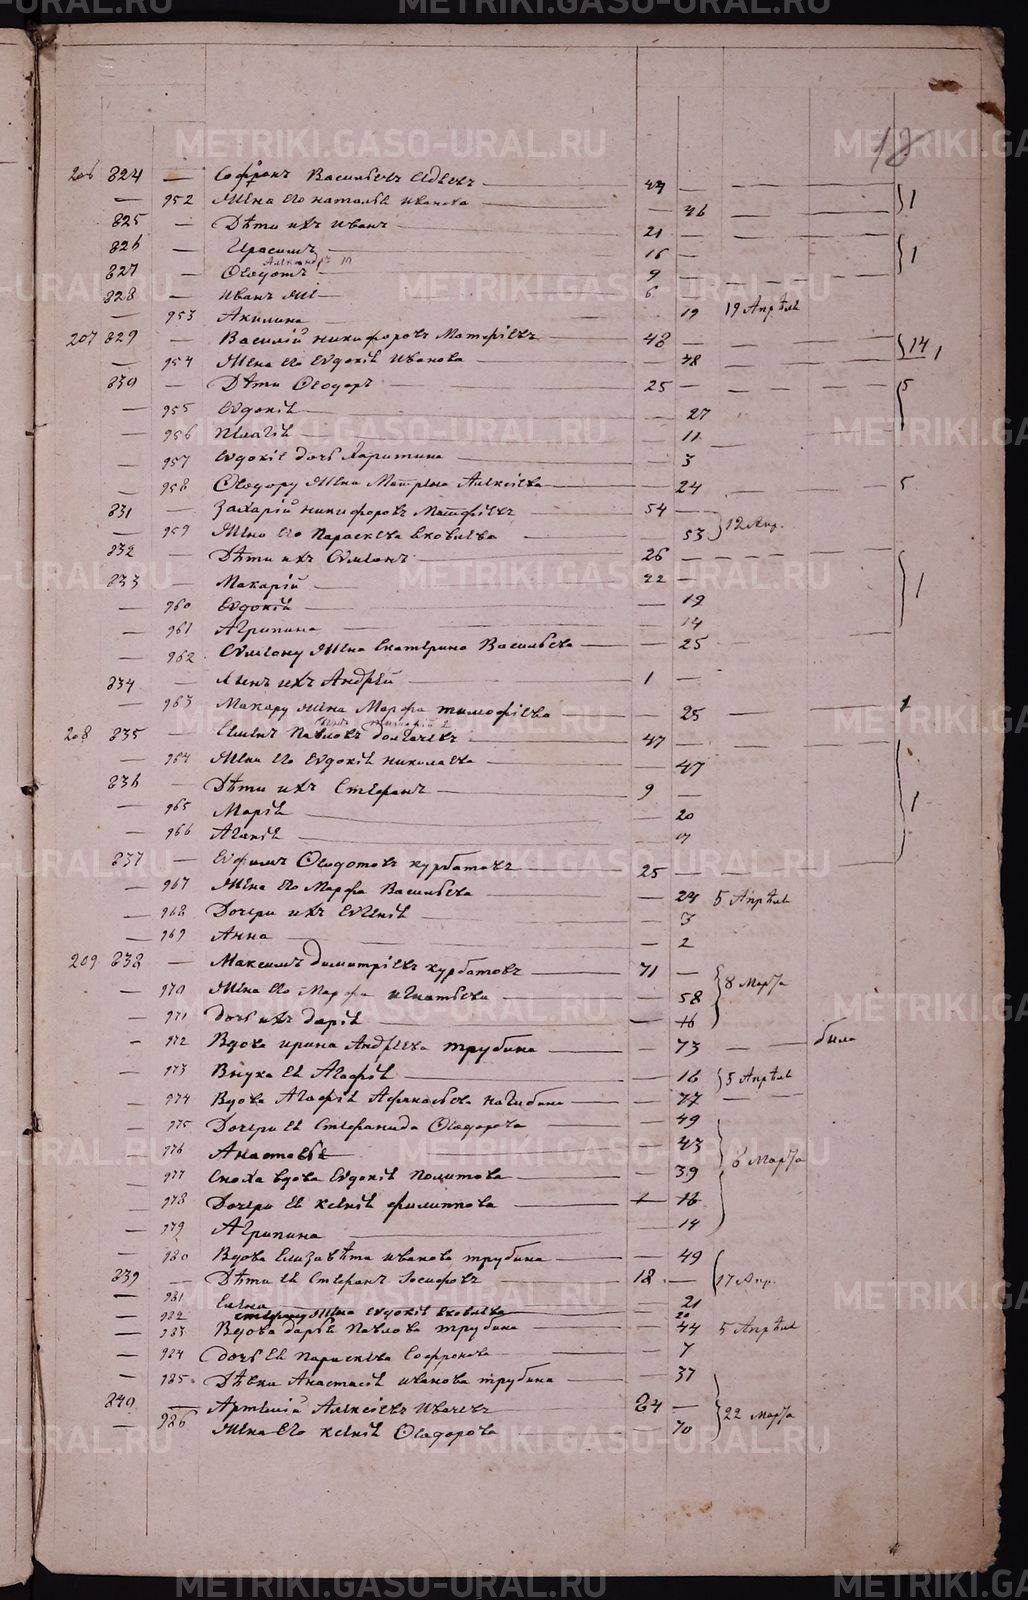 18
206 824 — Софронъ Васильевъ 47 —
— 952 Жена его Наталья Иванова — 46
825 — Дѣти ихъ Иванъ 21 —
826 — Герасимъ 16 —
Александръ
827 — Ѳедотъ 9 —
828 — Иванъ 6 —
— 953 Акилина 19 19 Апрѣля
207 829 — Василій Никифоровъ Матфіевъ 48 — 14
— 954 Жена его Евдокія Иванова — 48
830 — Дѣти Ѳеодоръ 25 — 5
— 955 Евдокія — 27
— 956 Пелагія — 11
— 957 Евдокіе дочь Харитина — 3
— 958 Ѳеодору жена Матрена Алексіева — 24 5
831 — Захарій Никифоровъ Матфіевъ 54 — 12 Апр.
— 959 Жена его Параскева Яковлева 53
832 — Дѣти ихъ Сѵмеонъ 26 —
833 — Макарій 22 — 1
— 960 Евдокія — 19
— 961 Агрипина — 14
— 962 Сѵмеону жена Екатерина Васильева — 25
834 — Сынъ ихъ Андрей 1 —
— 963 Макару жена Марфа Тимофіева — 25 1
сынъ 2
208 835 — Семенъ Павловъ Долгачевъ 47 —
— 964 Жена его Евдокія Николаева — 47
836 — Дѣти ихъ Стефанъ 9 — 1
— 965 Марія 20
— 966 Агапія 17
837 — Евфимъ Ѳедотовъ Курбатовъ 25 —
— 967 Жена его Марфа Васильева — 24 5 Апрѣля
— 968 Дочери ихъ Евгенія — 3
— 969 Анна — 2
209 838 — Максимъ Димитріевъ Курбатовъ 71 — 8 Марта
— 970 Жена его Марфа Игнатьева — 58
— 971 Дочь ихъ Дарія — 16
— 972 Вдова Ирина Андреева Трубина — 73 — была
— 973 Внука ея Агафія — 16 5 Апрѣля
— 974 Вдова Агафія Афанасьева Нагибина — 77
— 975 Дочери ея Стефанида Ѳеодорова — 49
— 976 Анастасья 43 6 Марта
— 977 Сноха вдова Евдокія Политова — 39
— 978 Дочери ея Ксенія Филиппова — 16
— 979 Агрипина — 14
— 980 Вдова Елизавѣта Иванова Трубина — 49
839 — Дѣти ея Стефанъ Іосифовъ 18 — 17 Апр.
— 981 Елена 21
— 982 Стефану жена Евдокія Яковлева 20
— 983 Вдова Дарья Павлова Трубина — 44 5 Апрѣля
— 984 Дочь ея Параскева Софронова — 7
— 985 Дѣвка Анастасія Иванова Трубина — 37
840 — Артемій Алексіевъ Ивачевъ 64 — 22 Марта
— 986 Жена его Ксенія Ѳеодорова — 70